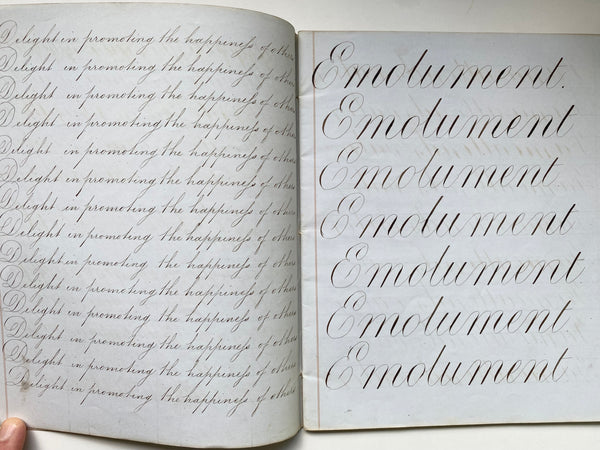 Delight in promoting the happineſs of others
Delight in promoting the happineſs of others
Delight in promoting the happineſs of others
Delight in promoting the happineſs of others
Delight in promoting the happineſs of others
Delight in promoting the happineſs of others
Delight in promoting the happineſs of others
Delight in promoting the happineſs of others
Delight in promoting the happineſs of others
Delight in promoting the happineſs of others
Delight in promoting the happineſs of others
Delight in promoting the happineſs of others
Delight in promoting the happineſs of others
Delight in promoting the happineſs of others
Emolument.
Emolument
Emolument.
Emolument
Emolument
Emolument.
Emolument